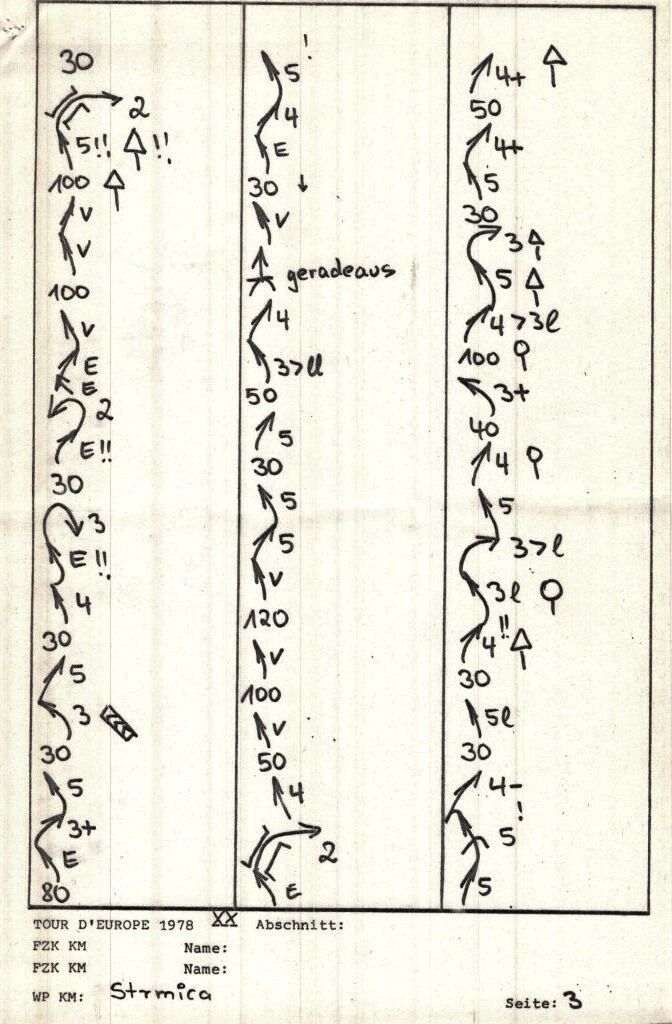 30
2
5!! !!
100
V
V
100
V
E
E
2
E!!
30
3
E!!
4
30
5
3
30
5
3+
E
80
!
5
4
E
30
V
geradeaus
4
3>ll
50
5
30
5
5
V
120
V
100
V
50
4
2
E
4+
50
4+
5
30
3
5
4>3l
100
3+
40
4
5
3>l
3l
!!
4
30
5l
30
4-
!
5
5
TOUR D'EUROPE 1978 XX Abschnitt:
FZK KM Name:
FZK KM Name:
WP KM: Strmica Seite: 3